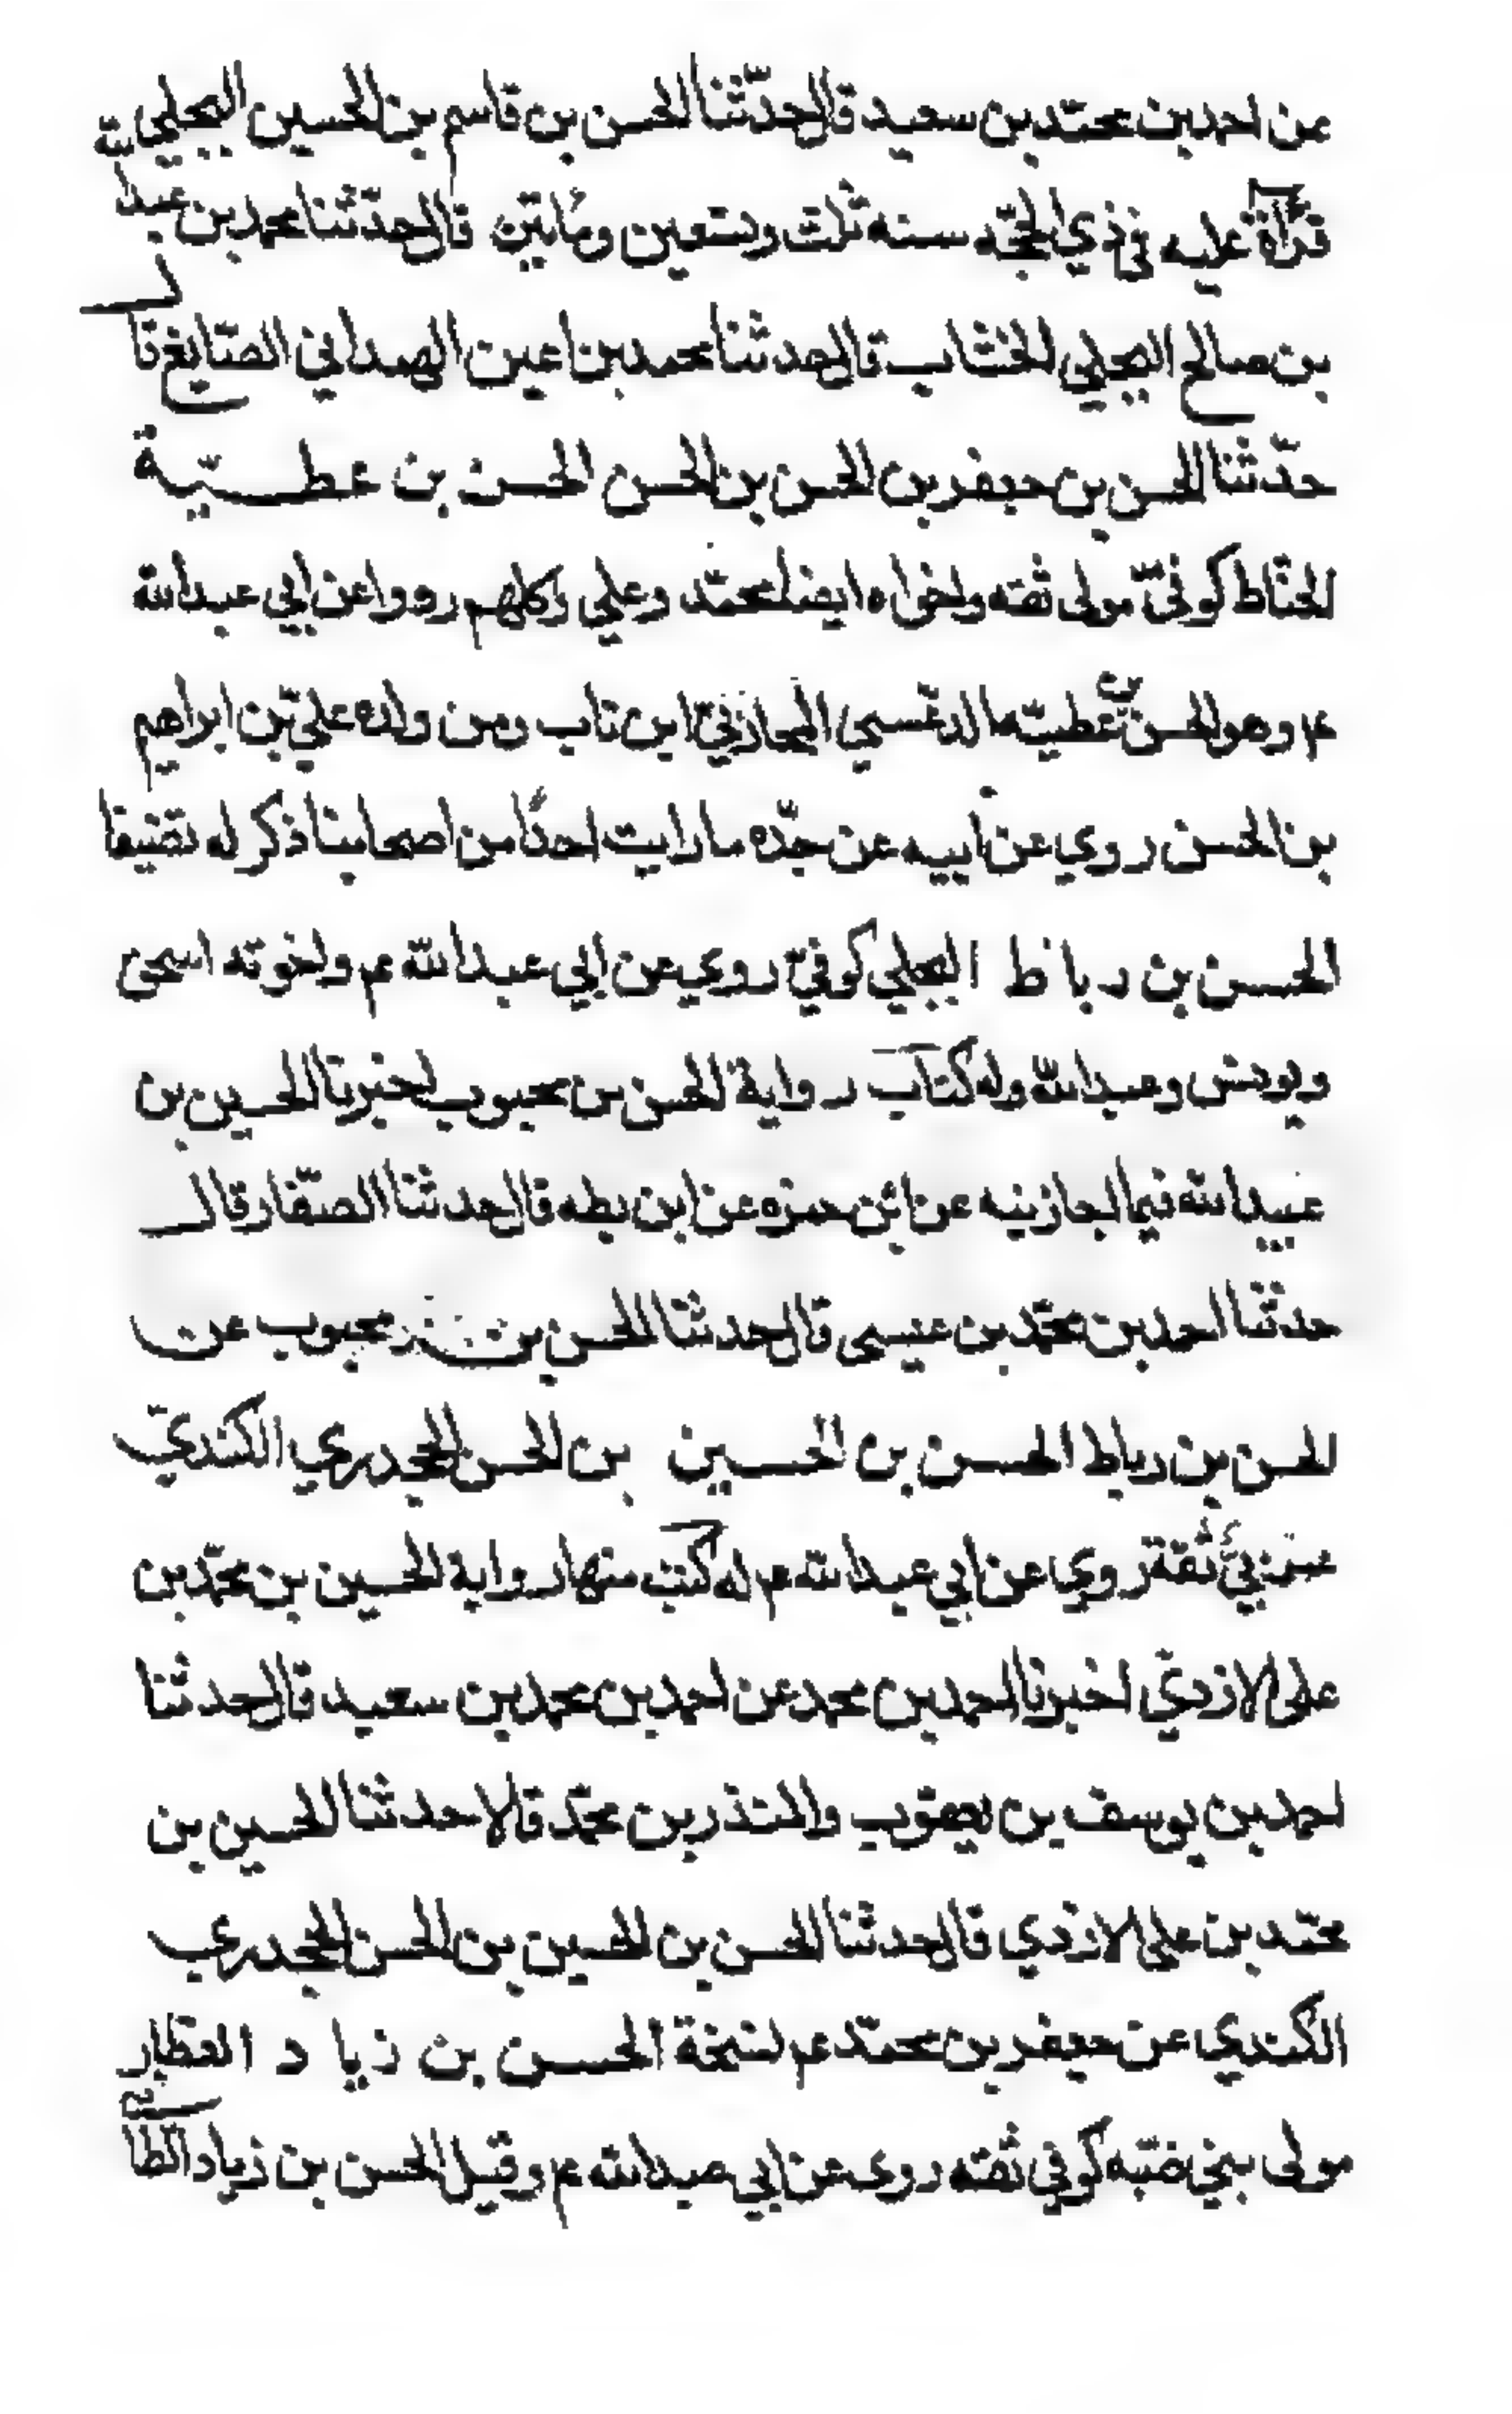 عن احمد بن محمّد بن سعيد قال حدّثنا الحسن بن قاسم بن الحسين البجلي
قرأة عليه في ذي الحجّه سنه ثلث وتسعين ومأتين قال حدّثنا محمد بن عبد الله
بن صالح البجلي الخشّاب قال حدثنا محمد بن اعين الهمداني الصّايغ قال
حدّثنا الحسن بن جعفر بن الحسن بن الحسن الحسن بن عطــيّــة
الحنّاط كوفيّ مولى ثقه واخواه ايضا محمّد وعلي وكلهم رووا عن ابي عبد الله
ع م وهو الحسن بن عطيّه الدغسي المحاربيّ ابن ناب ومن ولده عليّ بن ابراهيم
بن الحسن روي عن أبيه عن جدّه ما رايت احدًا من اصحابنا ذكر له تصنيفا
الحسن بن رباط البجلي كوفيّ روي عن ابي عبد الله ع م واخوته اسحق
ويونس وعبد الله وله كتاب رواية الحسن بن محبوب اخبرنا الحسين بن
عبيد الله فيما اجازنيه عن ابن حمزه عن ابن بطه قال حدثنا الصّفار قال
حدثنا احمد بن محمّد بن عيسى قال حدثنا الحسن بن محبوب عن
الحسن بن رباط الحسن بن الحسين بن الحسن الجحدري الكنديّ
عربيّ ثقة روي عن ابي عبد الله ع م له كتب منها رواية الحسين بن محمّد بن
على الازديّ اخبرنا احمد بن محمد عن احمد بن محمد بن سعيد قال حدثنا
احمد بن يوسف بن يعقوب والمنذر بن محمّد قالا حدثنا الحسين بن
محمّد بن على الازدي قال حدثنا الحسن بن الحسين بن الحسن الجحدري
الكندي عن جعفر بن محمّد ع م لنسخة الحسن بن زياد العطار
مولى بني ضبّه كوفي ثقه روى عن ابي عبد الله ع م وقيل الحسن بن زياد الطائي